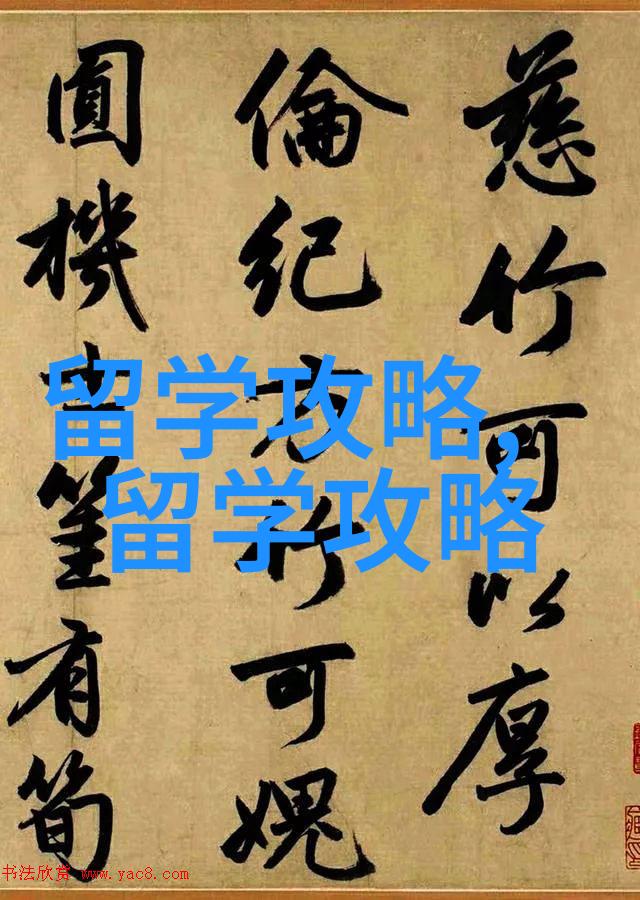 慈竹可以厚
倫紀方竹可媿
圓機士有筍
留学攻略,
留学攻略
书法欣赏 www.yac8.com